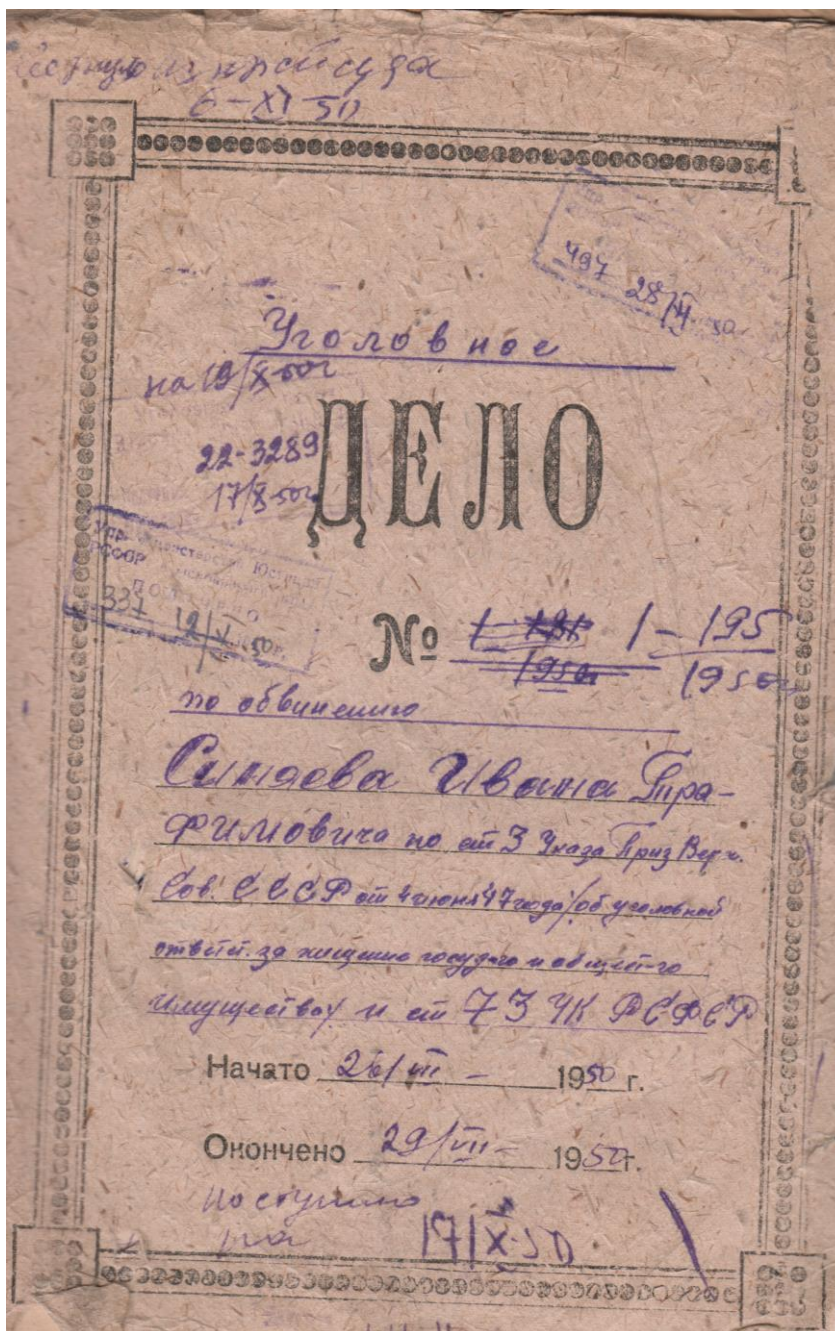 6-XI-50
497 28/
50
Уголовное
на 19/X 50г
ДЕЛО
22-3289
17/X 50г
Упр. Министерства Юстиции
РСФСР
337 12/V 50г.
№ 1-195
1950г 1950г
по обвинению
Синяева Ивана Тра-
фимовича по ст 3 Указа През Верх.
Сов. СССР от 4 июня 47 года /об уголовной
ответст. за хищение государ-го и общест-го
имущества/ и ст 73 УК РСФСР
Начато 26/III - 1950 г.
Окончено 29/VII - 1950 г.
поступило
17/X-50